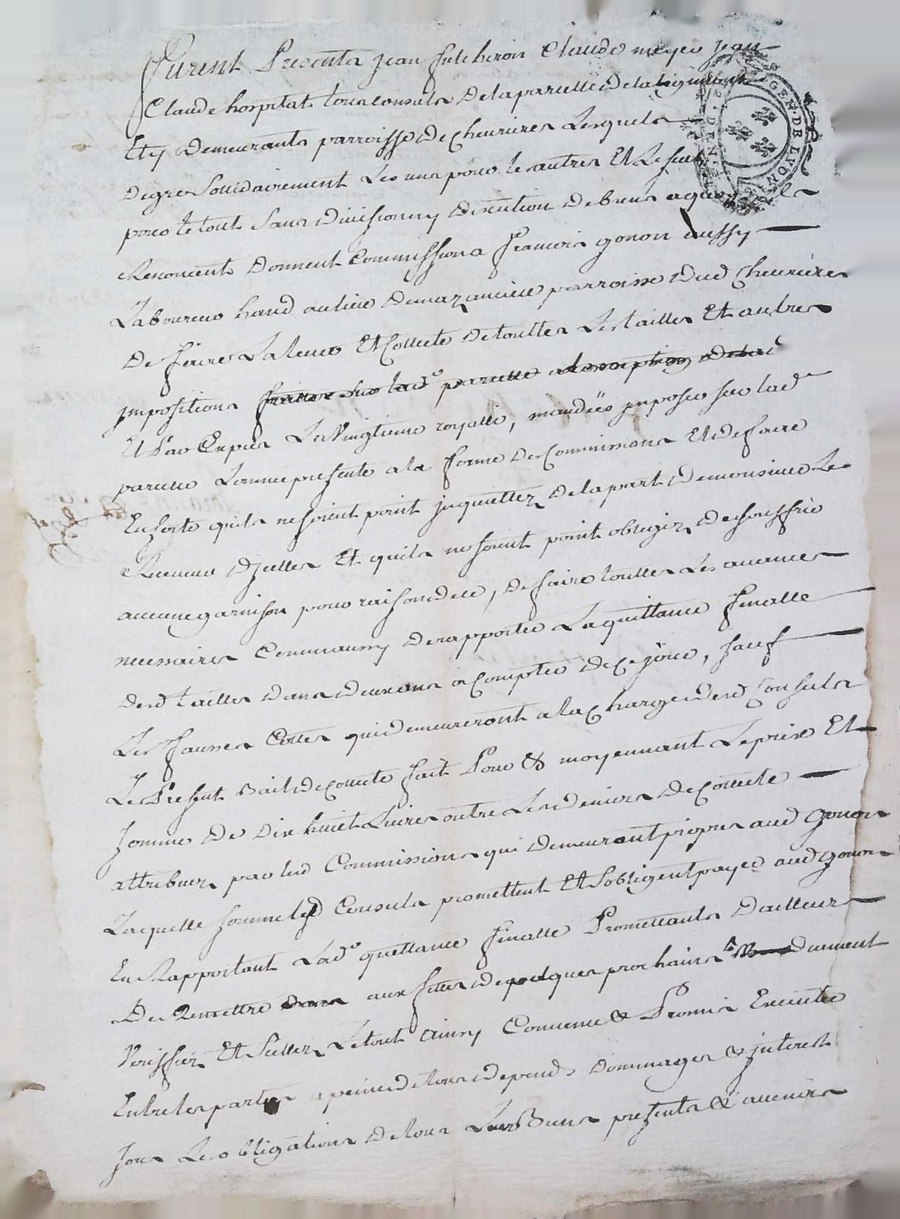 furent Presents jean fulcheron Claude meyer jean
GEN. DE LYON
Claude hospital tous consuls de la parcelle de la
Et y demeurants parroisse de chevrieres Lesquels
de gre solidairement Les uns pour les autres Et Le seul
pour le tout sans division ny discution de biens a quoy ils
Renoncent donnent Commission a françois gonon aussy
Laboureur habd au lieu de mazanciere parroisse dud chevrières
De faire La leveé Et Collecte de touttes Les tailles Et autres
jmpositions faittes sur lad.e parcelle a lexception
Et Par Exprés Le Vingtieme royalle, mandées jmposer sur lad.e
parcelle Lanneé presente a la forme des Commissions Et de faire
En sorte quils ne soient point jnquiettez de la part de monsieur Le
Receveur djcelles Et quils ne soient point obligez de souffrir
aucune garnison pour raison dice, de faire touttes Les avances
necessaires Comm'aussy de rapporter La quittance finalle
desd tailles dans deux ans a compter de ce jour, sauf
Les fausses Cottes qui demeureront a la charge desd Consuls
Le Present Bail de Collecte fait Pour & moyennant Le prix Et
somme de dix huit Livres outre Les deniers de Collecte
attribuez par lesd Commissions qui demeuront propres aud gonon
Laquelle somme lesd Consuls promettent Et s'obligent payer aud gonon
En Rapportant Lad.e quittance finalle Promettants d'ailleurs
De Remettre aux fettes de paques prochains dument
Veriffiez Et Scellez Le tout ainsy Convenu & Promis Executer
Entre les parties a peine de tous depends dommages & jnterests
sous Les obligations de tous Leurs Biens presents & avenirs